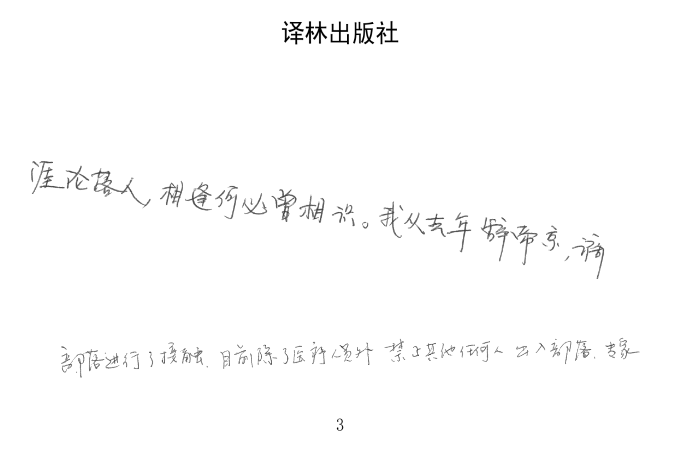 译林出版社
涯沦落人，相逢何必曾相识。我从去年辞帝京，谪
部落进行了接触。目前除了医疗人员外 禁止其他任何人出入部落。专家
3